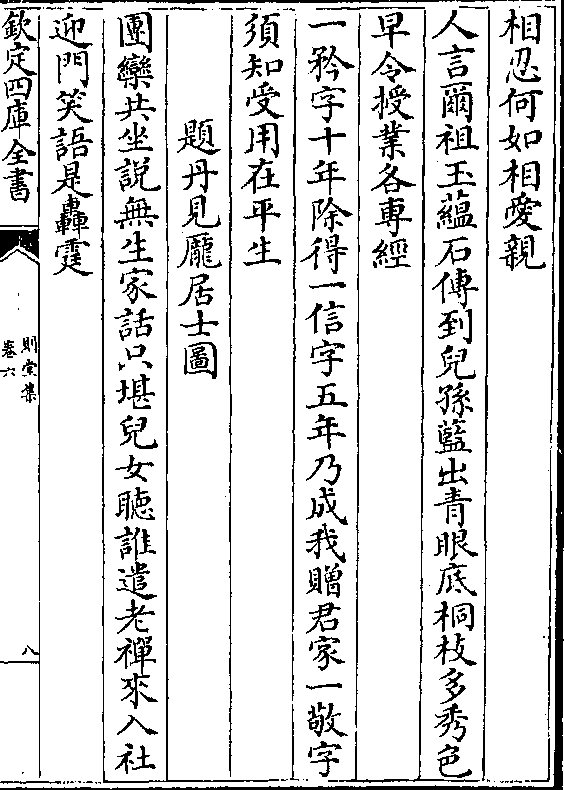 相忍何如相愛親
人言爾祖玉蘊石傳到兒孫藍出青眼底桐枝多秀色
早令授業各專經
一矜字十年除得一信字五年乃成我贈君家一敬字
須知受用在平生
題丹見龐居士圖
團欒共坐說無生家話只堪兒女聽誰遣老禪來入社
迎門笑語是轟霆
欽定四庫全書
則堂集
卷六
八